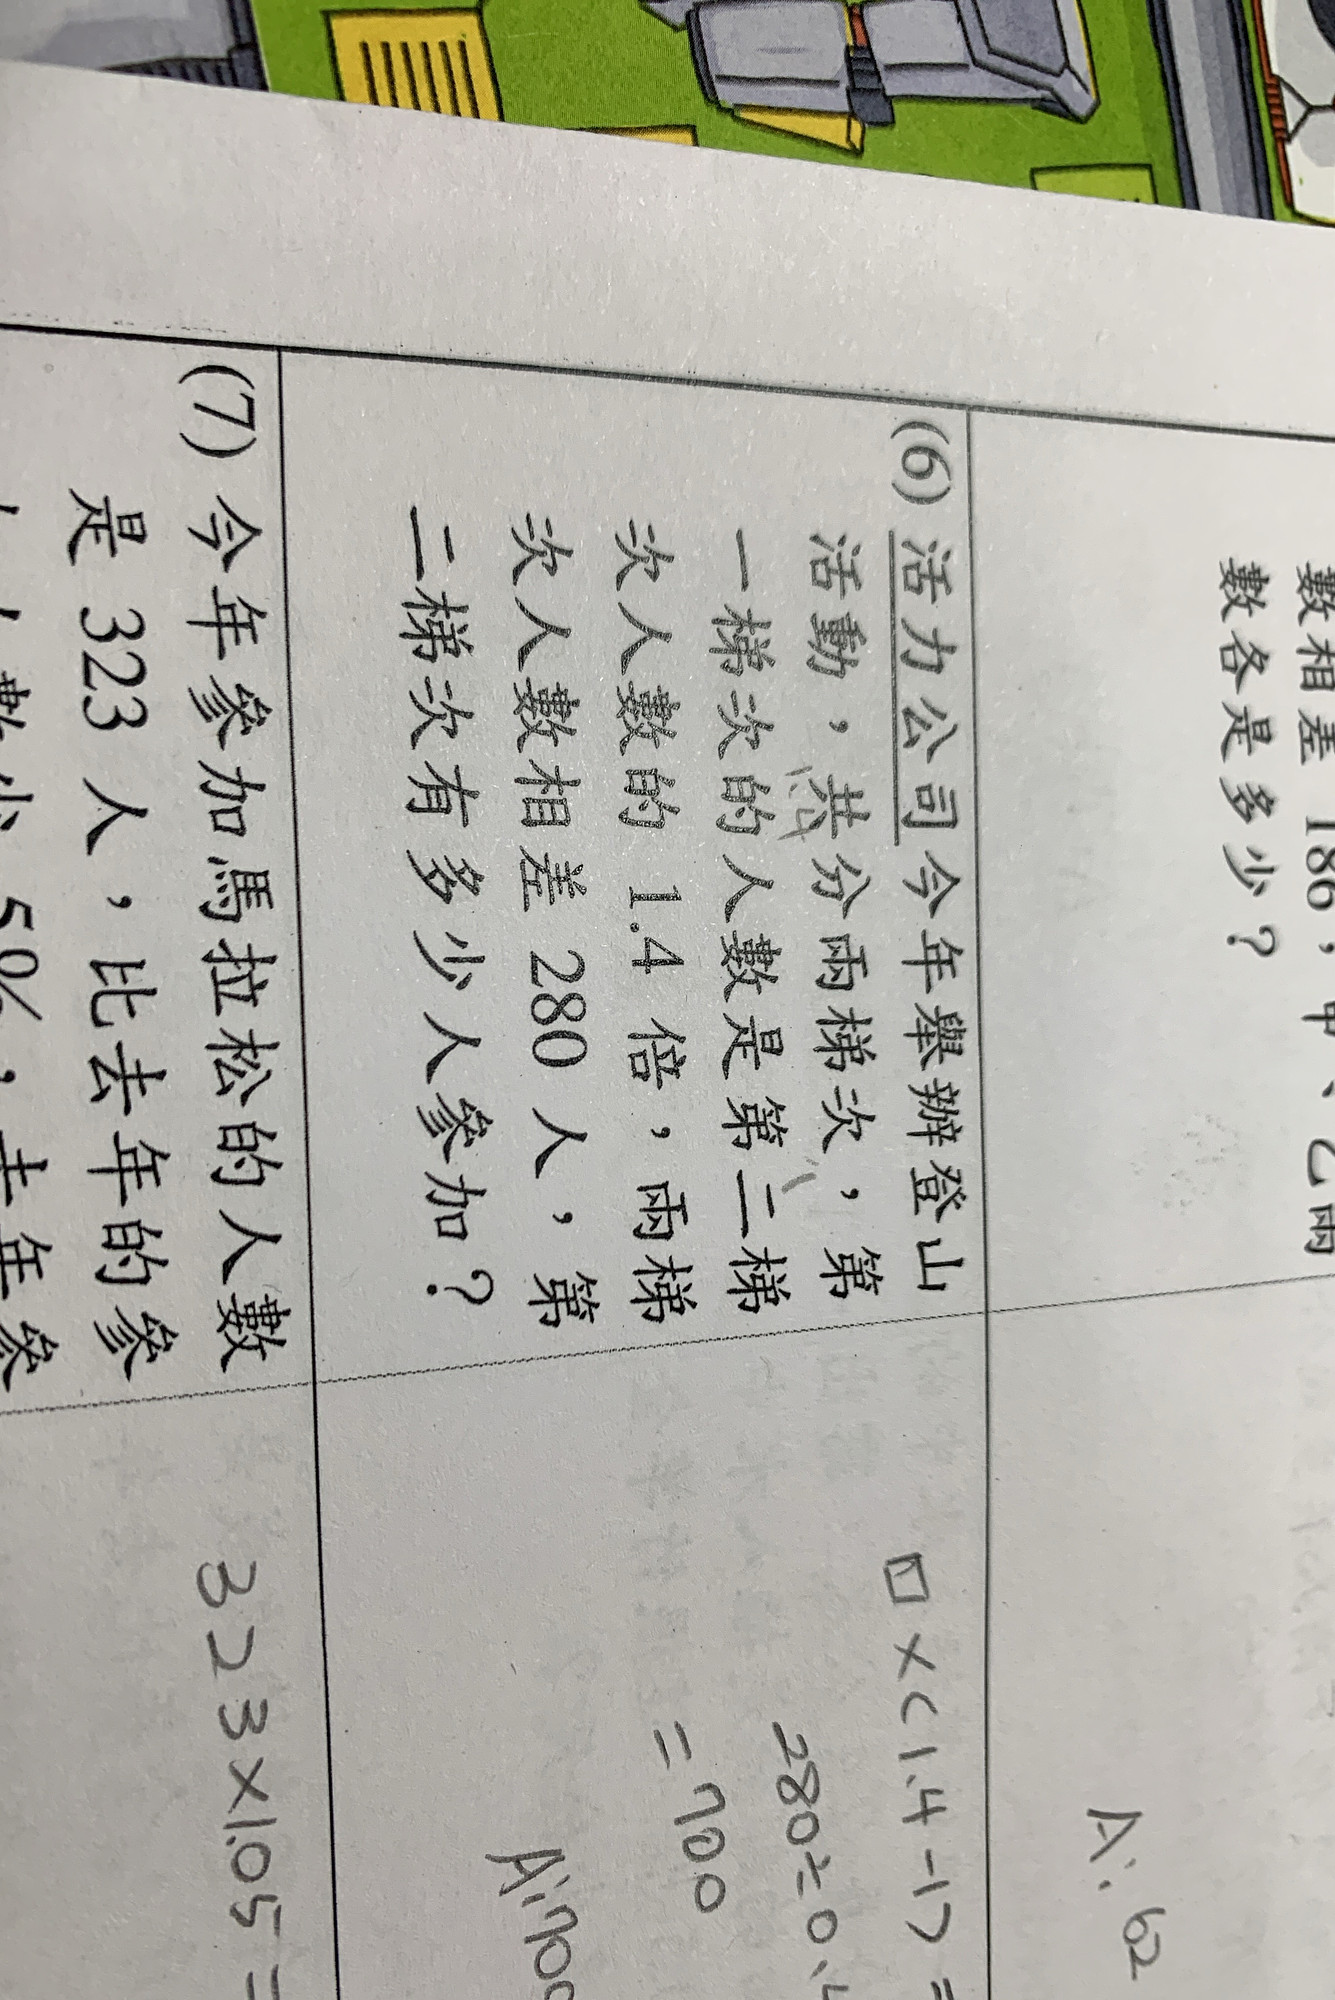 數相差 186，甲、乙兩
數各是多少？
A：62
(6) 活力公司今年舉辦登山
活動，共分兩梯次，第
一梯次的人數是第二梯
次人數的 1.4 倍，兩梯
次人數相差 280 人，第
二梯次有多少人參加？
□×(1.4-1)=
280÷0.4
=700
A：700
(7) 今年參加馬拉松的人數
是 323 人，比去年的參
人數少 5%，去年參
323×1.05=